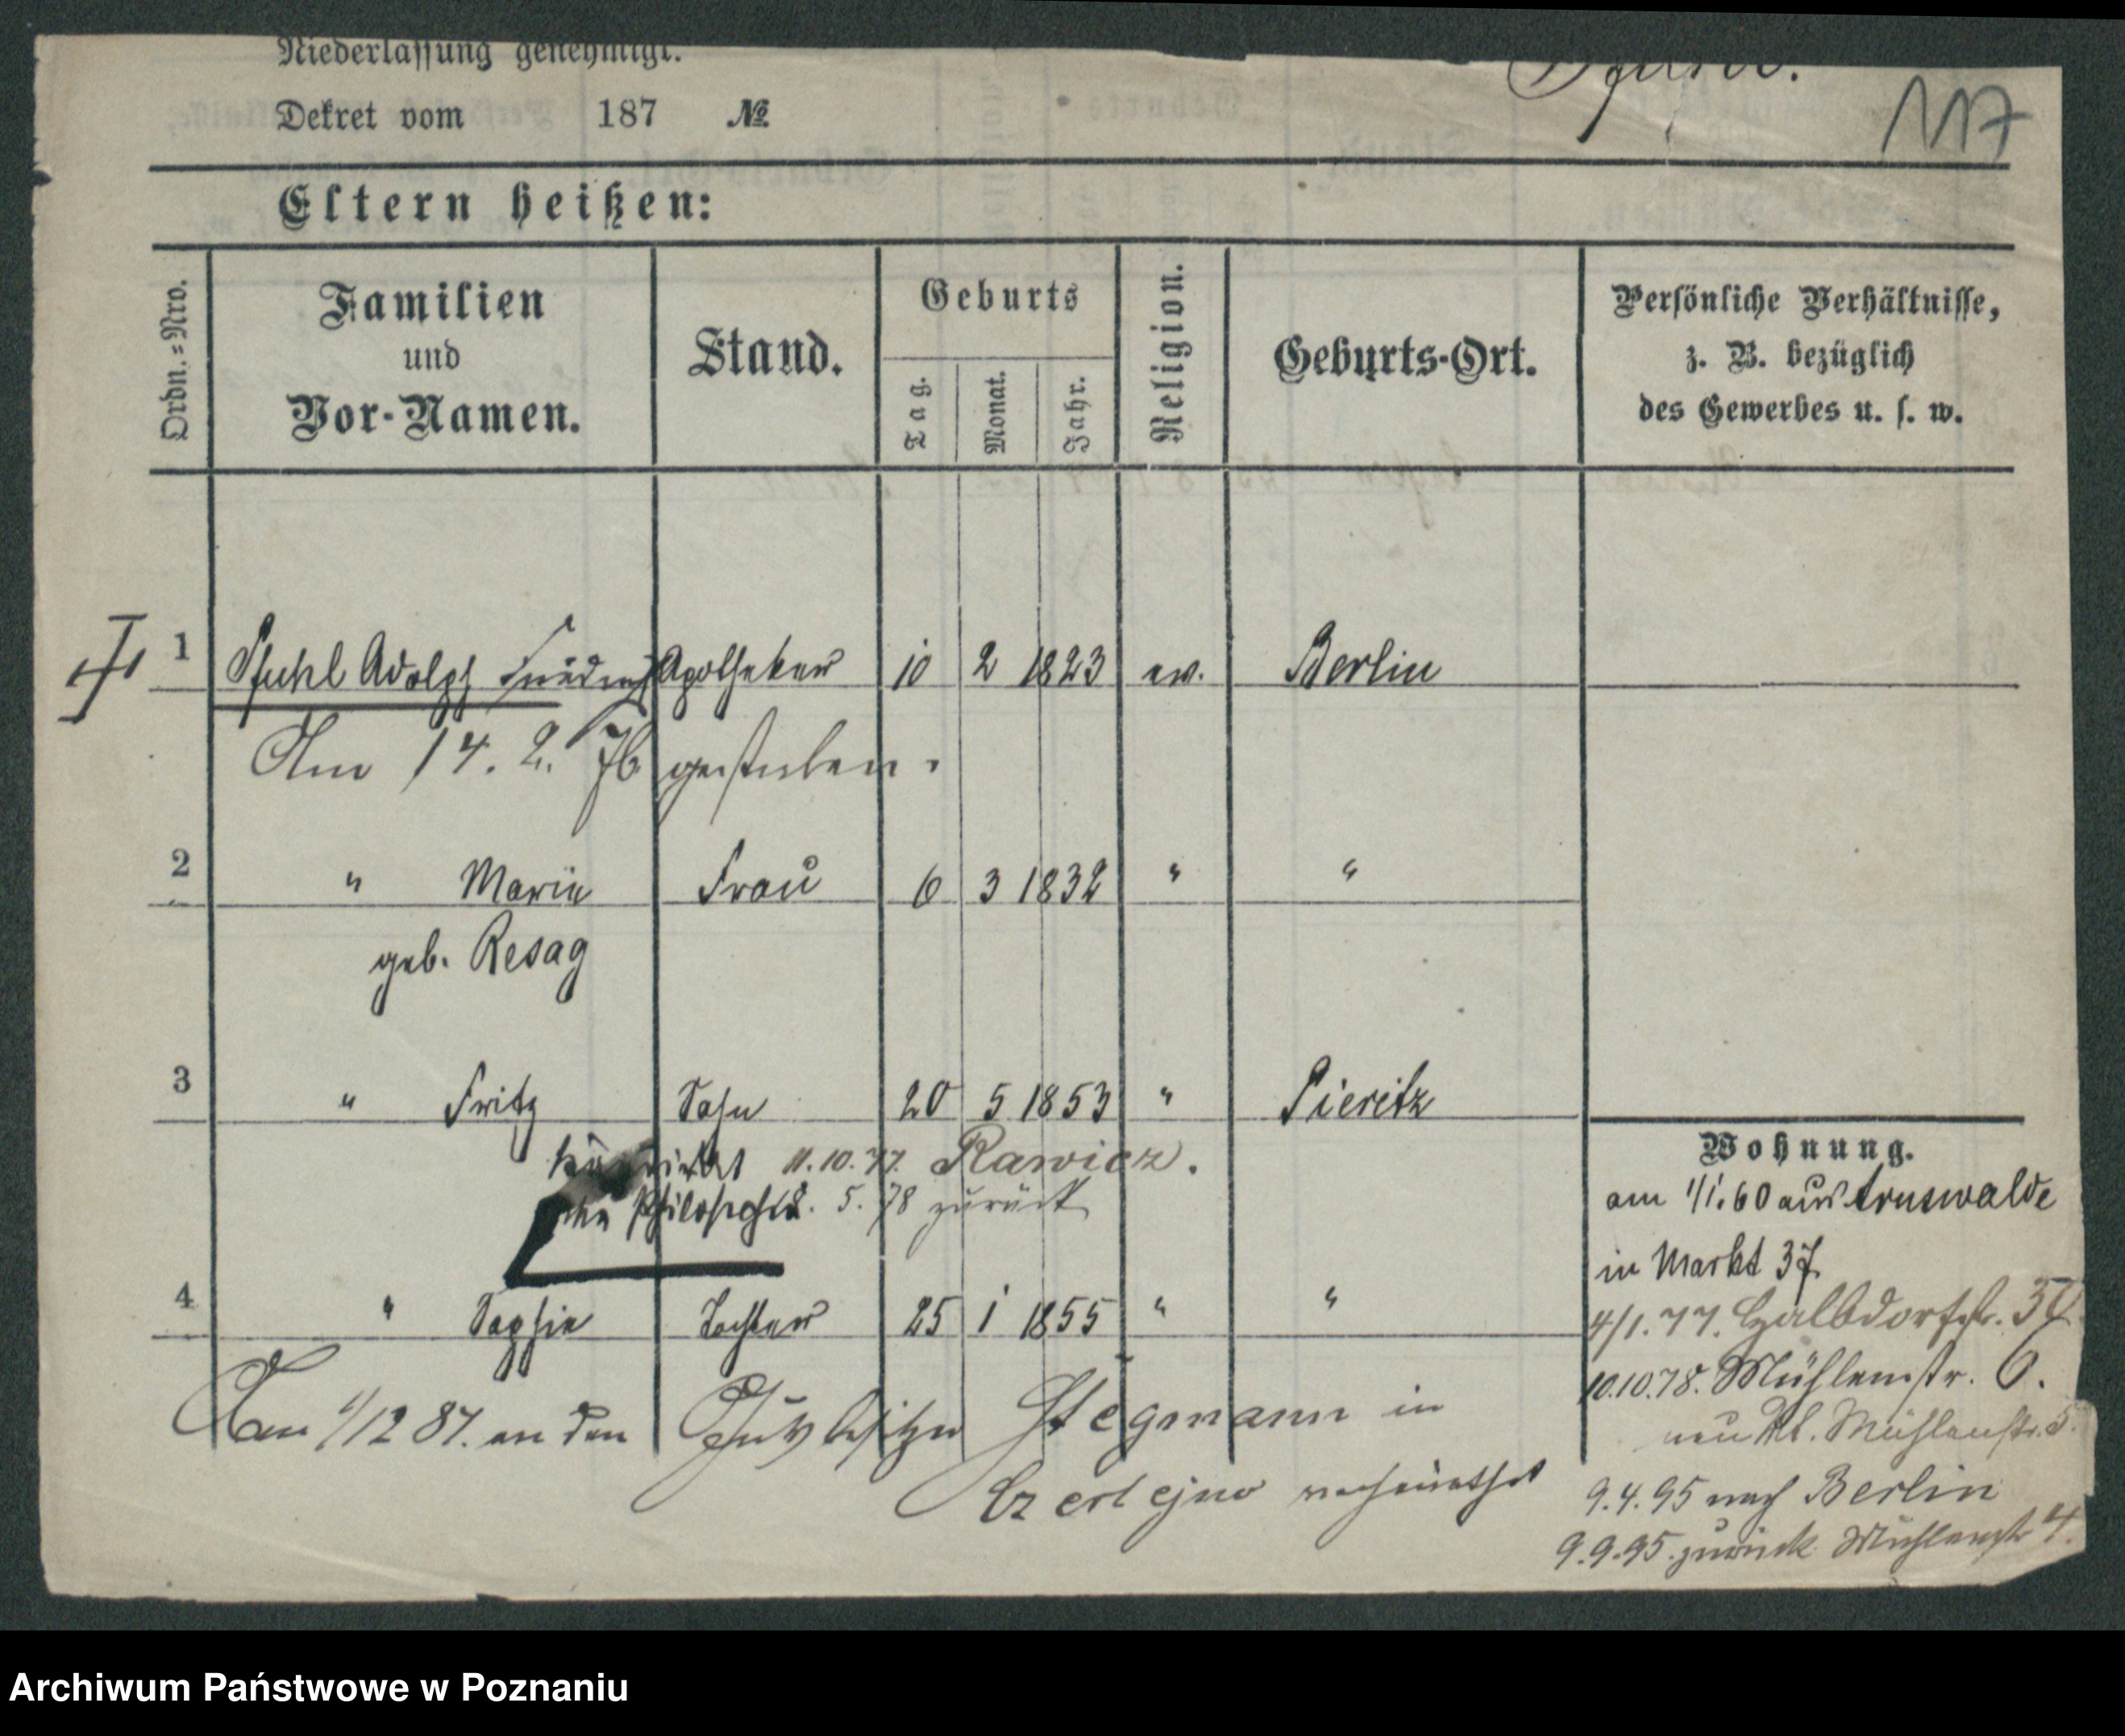 Niederlassung genehmigt.
Dekret vom 187 №
117
Eltern heißen:
Ordn.=Nro.
Familien
und
Vor-Namen.
Stand.
Geburts
Tag.
Monat.
Jahr.
Religion.
Geburts-Ort.
Persönliche Verhältnisse,
z. B. bezüglich
des Gewerbes u. s. w.
1 Pfuhl Adolph Friedrich Apotheker 10 2 1823 ev. Berlin
Am 14. 2. 76 gestorben.
2 " Marie Frau 6 3 1832 " "
geb. Resag
3 " Fritz Sohn 20 5 1853 " Pieritz
11.10.77. Rawicz.
5. 78 zurück
4 " Sophie Tochter 25 1 1855 " "
Am 1/12 87. an den Gutsbesitzer Stegmann in
verheirathet
Wohnung.
am 1/1. 60 aus Arnswalde
in Markt 37
4/1. 77. Halbdorfstr.
10.10.78. Mühlenstr. 6.
neu Mühlenstr. 5.
9.4.95 nach Berlin
9.9.95. zurück Mühlenstr 4.
Archiwum Państwowe w Poznaniu